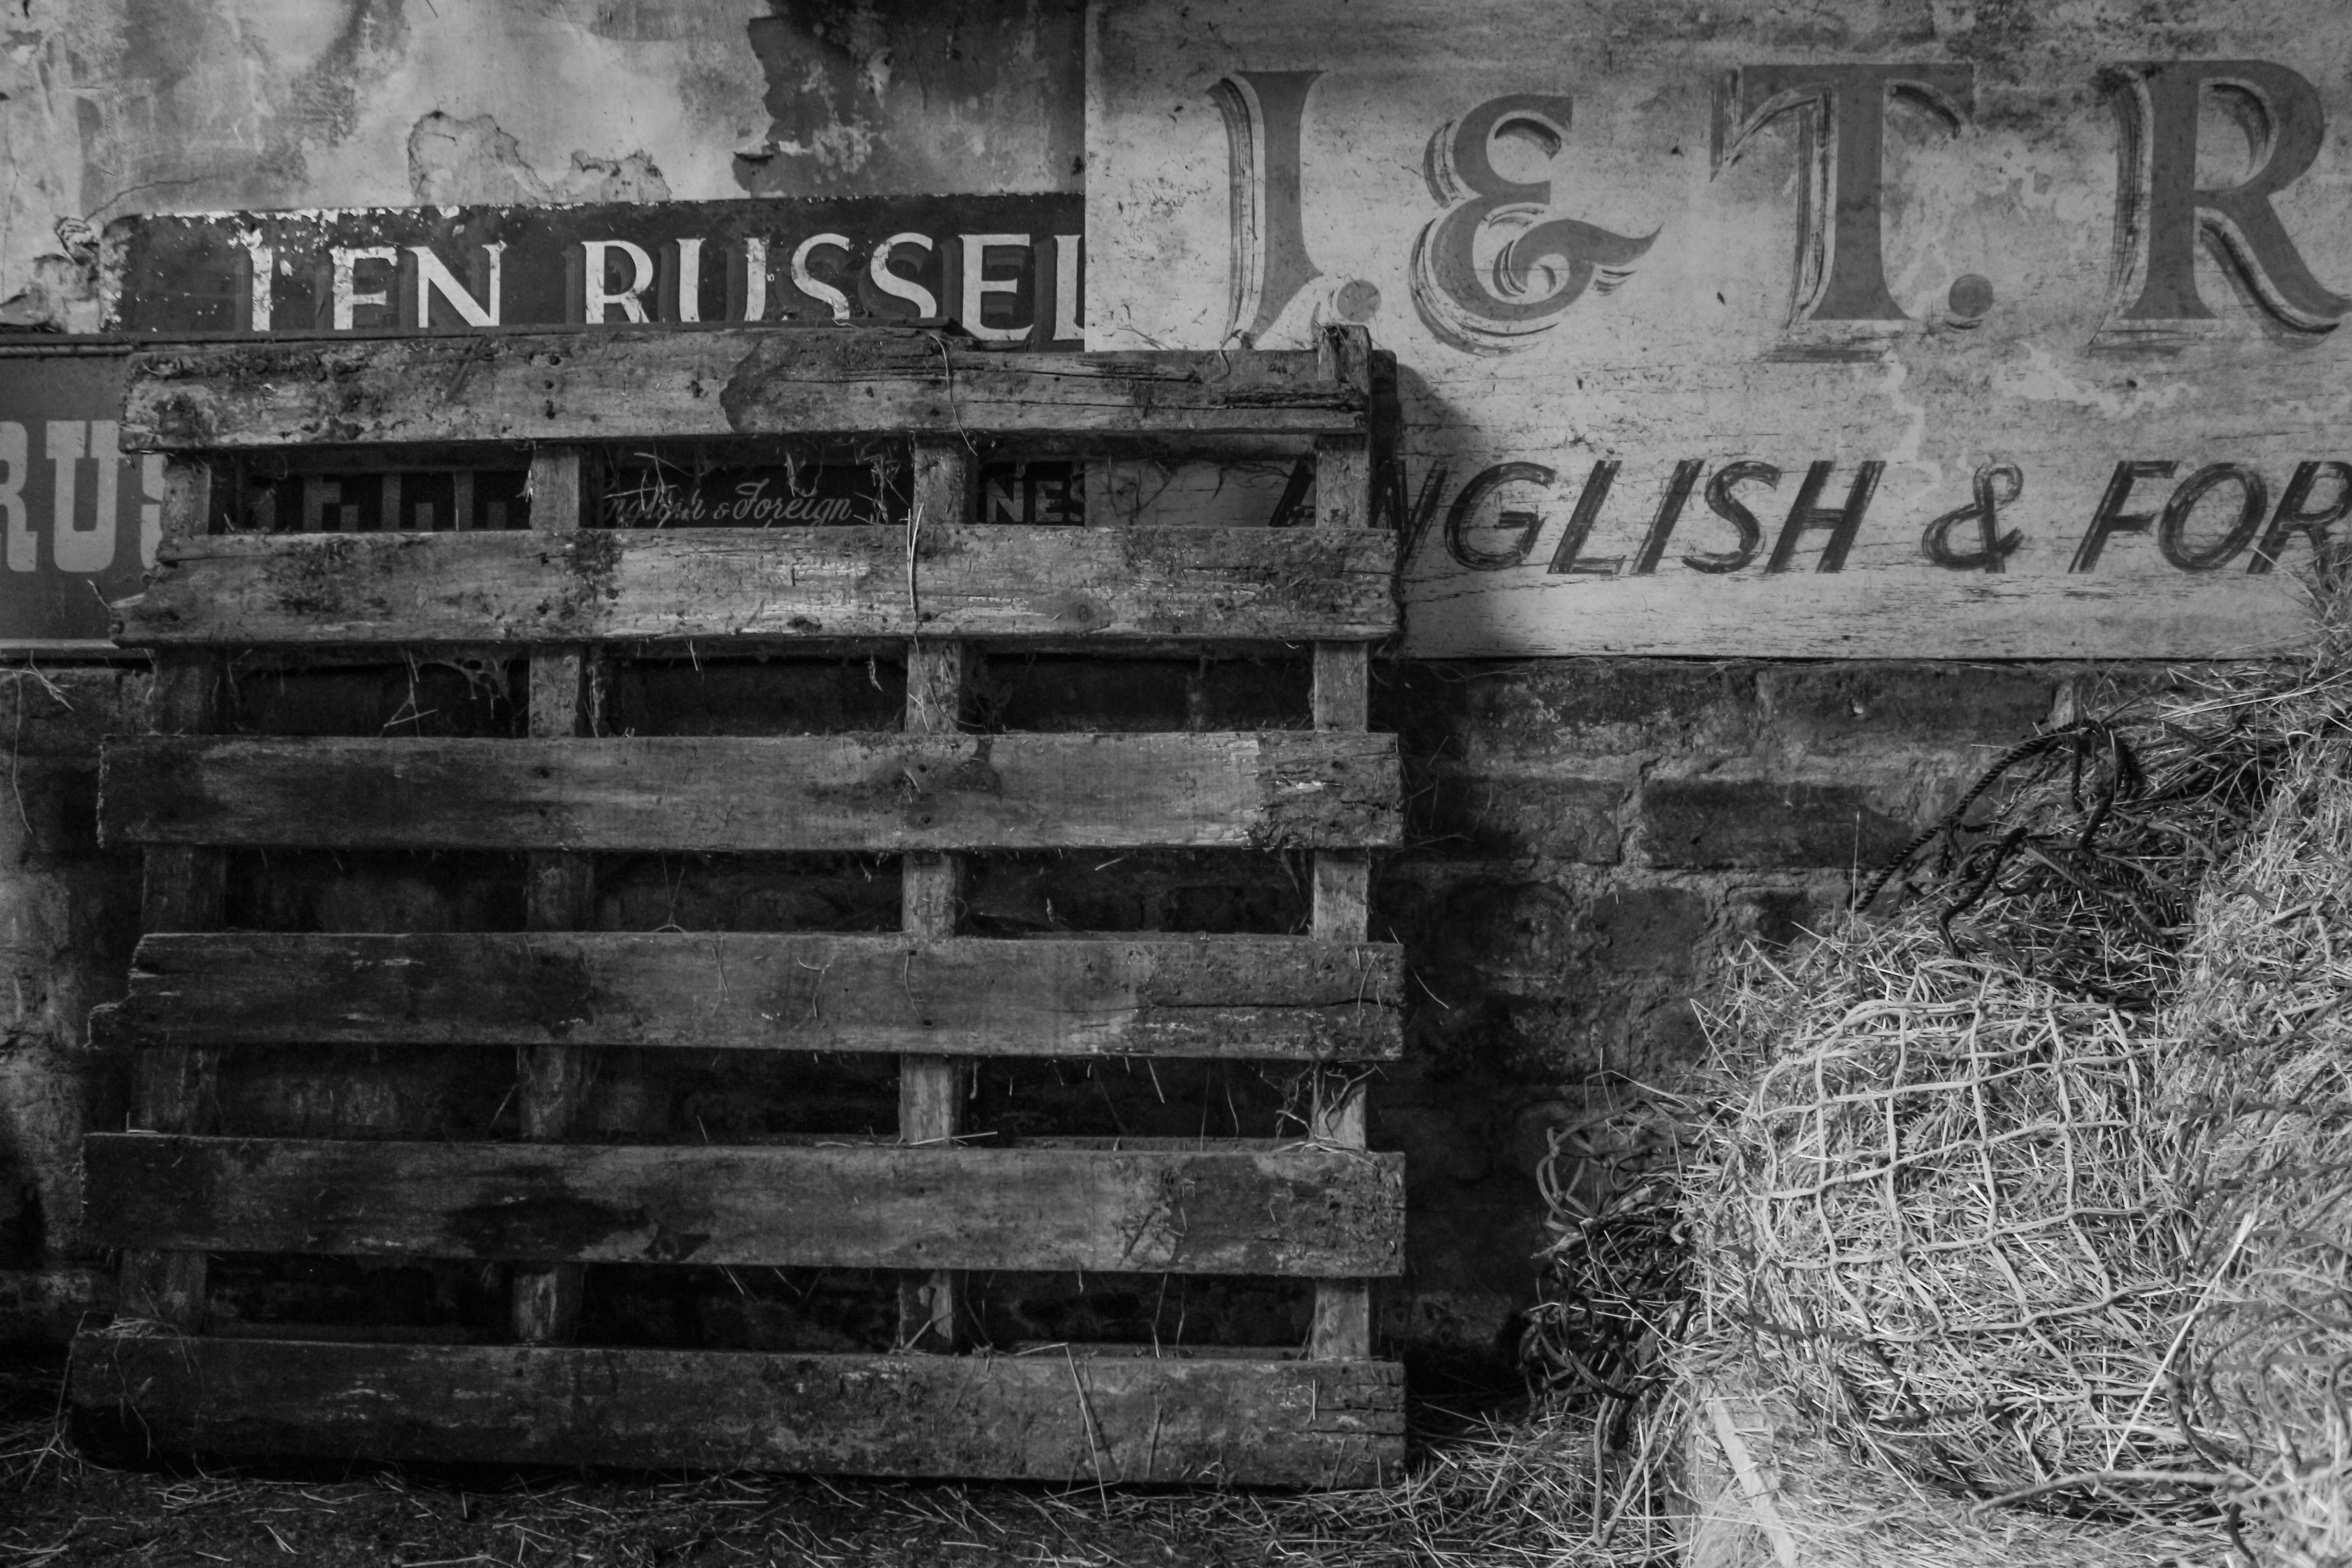 LEN RUSSEL
J. & T. R
RUS ELL
English & Foreign
NES
ENGLISH & FOR